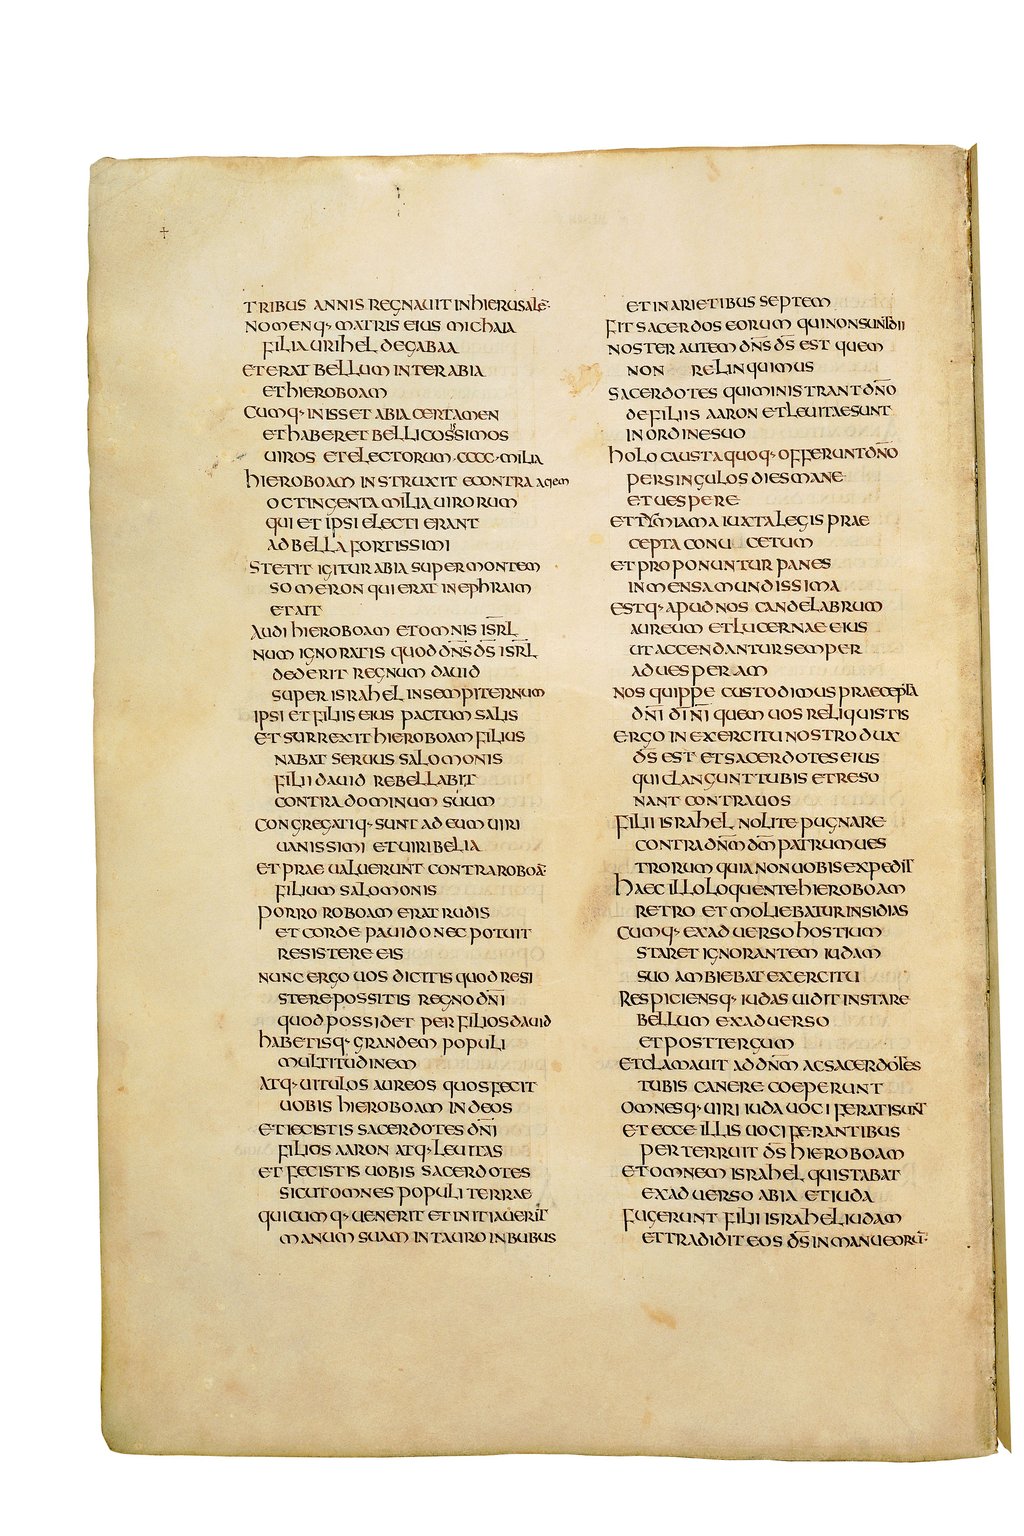 TRIBUS ANNIS REGNAUIT IN HIERUSALE·
NOMENQ· MATRIS EIUS MICHAIA
FILIA URIHEL DE GABAA
ET ERAT BELLUM INTER ABIA
ET HIEROBOAM
CUMQ· INISSET ABIA CERTAMEN
ET HABERET BELLICOSISSIMOS
UIROS ET ELECTORUM ·CCCC· MILIA
HIEROBOAM INSTRUXIT E CONTRA AQEM
OCTINGENTA MILIA UIRORUM
QUI ET IPSI ELECTI ERANT
AD BELLA FORTISSIMI
STETIT IGITUR ABIA SUPER MONTEM
SOMERON QUI ERAT IN EPHRAIM
ET AIT
AUDI HIEROBOAM ET OMNIS ISRL̅
NUM IGNORATIS QUOD DN̅S D̅S ISRL̅
DEDERIT REGNUM DAUID
SUPER ISRAHEL IN SEMPITERNUM
IPSI ET FILIIS EIUS PACTUM SALIS
ET SURREXIT HIEROBOAM FILIUS
NABAT SERUUS SALOMONIS
FILII DAUID REBELLABIT
CONTRA DOMINUM SUUM
CONGREGATIQ· SUNT AD EUM UIRI
UANISSIMI ET UIRI BELIA
ET PRAEUALUERUNT CONTRA ROBOĀ·
FILIUM SALOMONIS
PORRO ROBOAM ERAT RUDIS
ET CORDE PAUIDO NEC POTUIT
RESISTERE EIS
NUNC ERGO UOS DICITIS QUOD RESI
STERE POSSITIS REGNO DN̅I
QUOD POSSIDET PER FILIOS DAUID
HABETISQ· GRANDEM POPULI
MULTITUDINEM
ATQ· UITULOS AUREOS QUOS FECIT
UOBIS HIEROBOAM IN DEOS
ET IECISTIS SACERDOTES DN̅I
FILIOS AARON ATQ· LEUITAS
ET FECISTIS UOBIS SACERDOTES
SICUT OMNES POPULI TERRAE
QUICUMQ· UENERIT ET INITIAUERIT
MANUM SUAM IN TAURO IN BUBUS
ET IN ARIETIBUS SEPTEM
FIT SACERDOS EORUM QUI NON SUNT DII
NOSTER AUTEM DN̅S D̅S EST QUEM
NON RELINQUIMUS
SACERDOTES QUI MINISTRANT DN̅O
DE FILIIS AARON ET LEUITAE SUNT
IN ORDINE SUO
HOLOCAUSTA QUOQ· OFFERUNT DN̅O
PER SINGULOS DIES MANE
ET UESPERE
ET TYMIAMA IUXTA LEGIS PRAE
CEPTA CONU CETUM
ET PROPONUNTUR PANES
IN MENSA MUNDISSIMA
ESTQ· APUD NOS CANDELABRUM
AUREUM ET LUCERNAE EIUS
UT ACCENDANTUR SEMPER
AD UESPERAM
NOS QUIPPE CUSTODIMUS PRAECEPTA
DN̅I DI̅ N̅I QUEM UOS RELIQUISTIS
ERGO IN EXERCITU NOSTRO DUX
D̅S EST ET SACERDOTES EIUS
QUI CLANGUNT TUBIS ET RESO
NANT CONTRA UOS
FILII ISRAHEL NOLITE PUGNARE
CONTRA DN̅M DM̅ PATRUM UES
TRORUM QUIA NON UOBIS EXPEDIT
HAEC ILLO LOQUENTE HIEROBOAM
RETRO ET MOLIEBATUR INSIDIAS
CUMQ· EX ADUERSO HOSTIUM
STARET IGNORANTEM IUDAM
SUO AMBIEBAT EXERCITU
RESPICIENSQ· IUDAS UIDIT INSTARE
BELLUM EX ADUERSO
ET POST TERGUM
ET CLAMAUIT AD DN̅M AC SACERDOTES
TUBIS CANERE COEPERUNT
OMNESQ· UIRI IUDA UOCIFERATI SUNT
ET ECCE ILLIS UOCIFERANTIBUS
PERTERRUIT D̅S HIEROBOAM
ET OMNEM ISRAHEL QUI STABAT
EX ADUERSO ABIA ET IUDA
FUGERUNT FILII ISRAHEL IUDAM
ET TRADIDIT EOS D̅S IN MANU EORŪ·